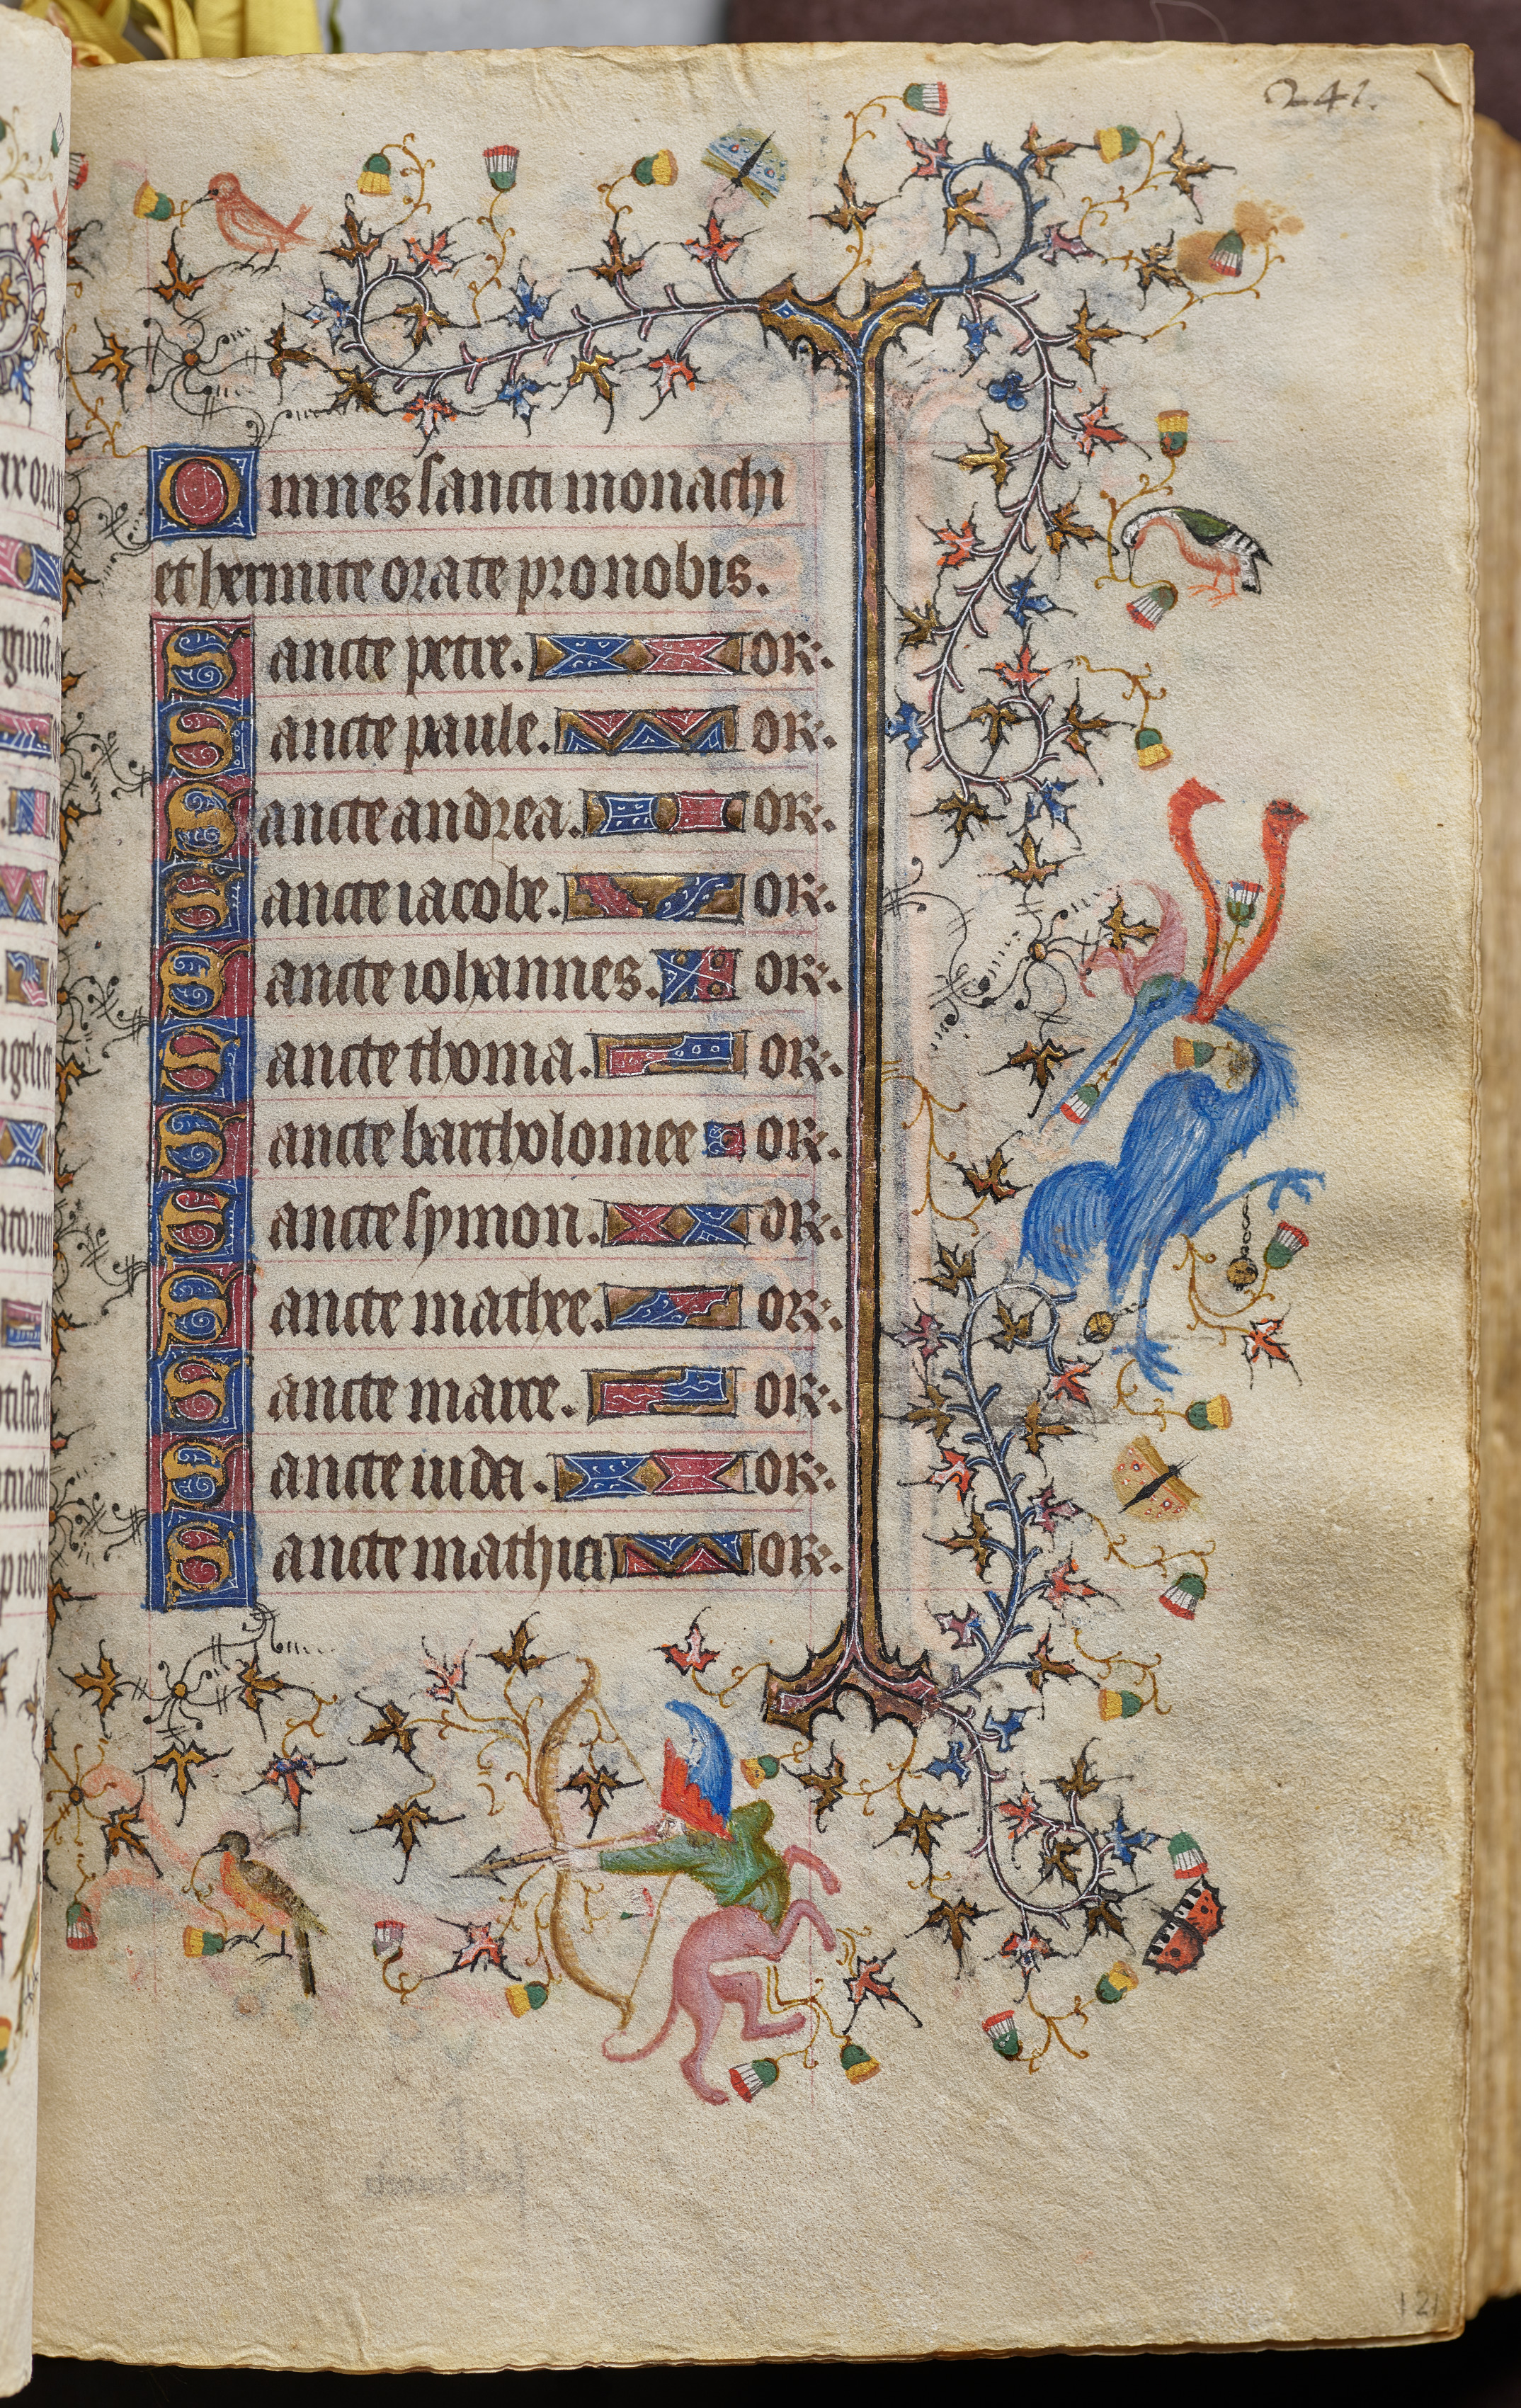 241.
Omnes sancti monachi
et hermite orate pro nobis.
Sancte petre. OR.
Sancte paule. OR.
Sancte andrea. OR.
Sancte iacobe. OR.
Sancte iohannes. OR.
Sancte thoma. OR.
Sancte bartholomee OR.
Sancte symon. OR.
Sancte mathee. OR.
Sancte marce. OR.
Sancte iuda. OR.
Sancte mathia OR.
121